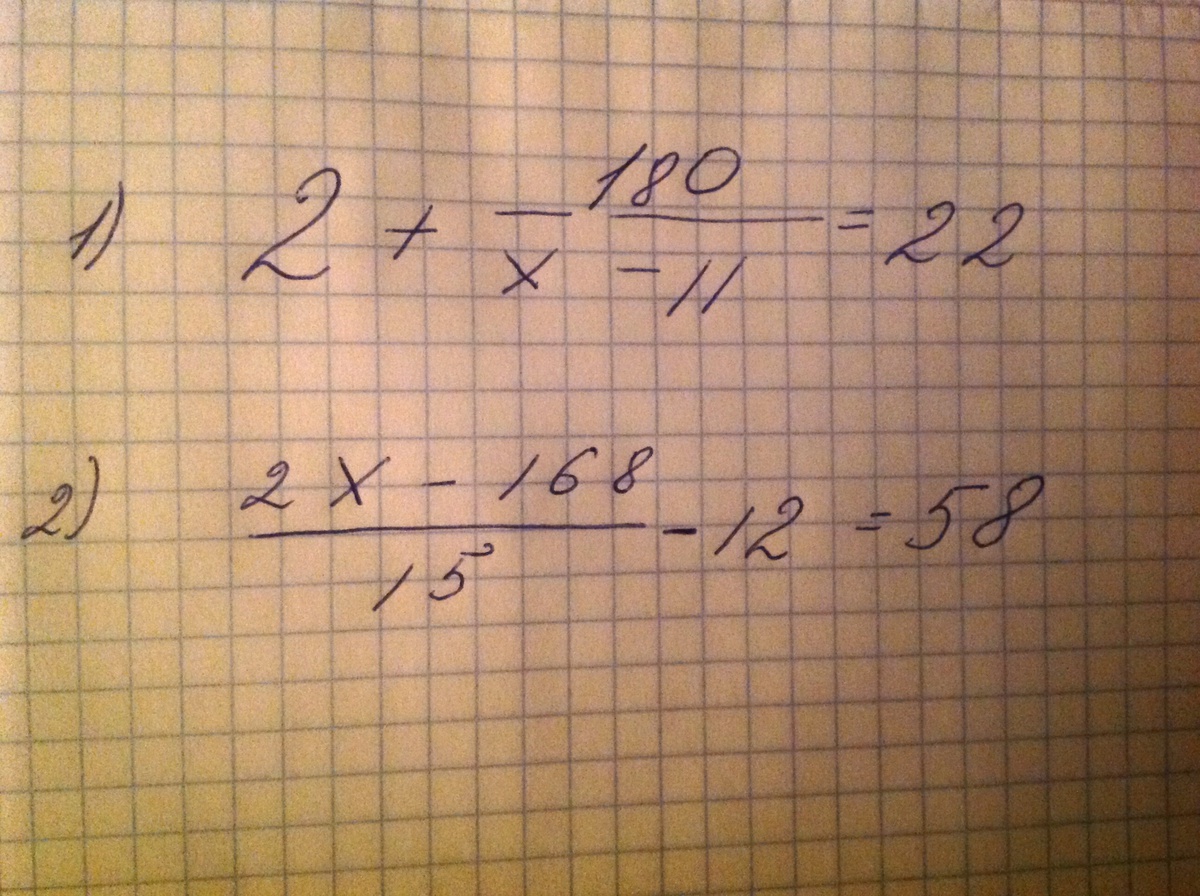 1) 2 + 180/(x - 11) = 22
2) (2x - 168)/15 - 12 = 58